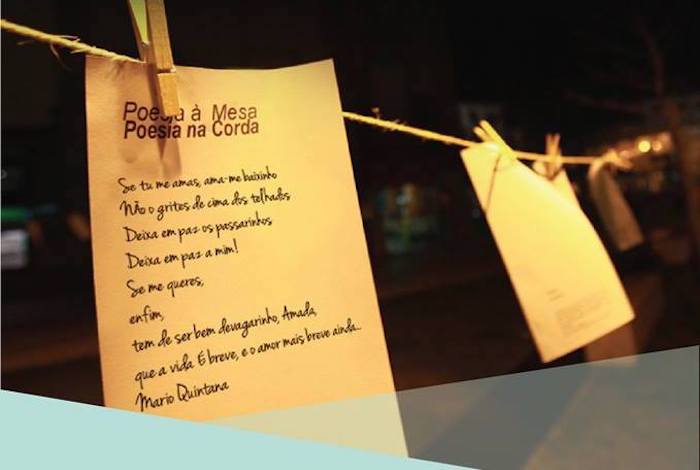 Poesia à Mesa
Poesia na Corda
Se tu me amas, ama-me baixinho
Não o grites de cima dos telhados
Deixa em paz os passarinhos
Deixa em paz a mim!
Se me queres,
enfim,
tem de ser bem devagarinho, Amada,
que a vida É breve, e o amor mais breve ainda...
Mario Quintana